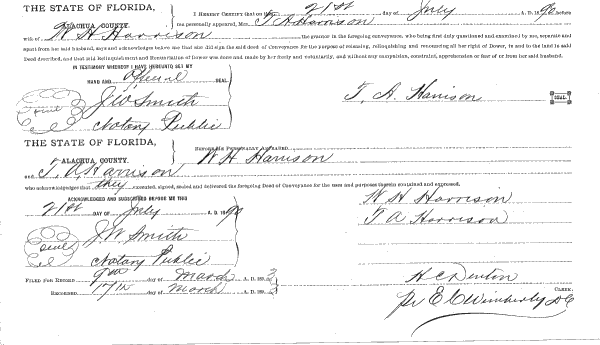 THE STATE OF FLORIDA, I HEREBY CERTIFY that on this 21st day of July A. D. 1890 before
ALACHUA COUNTY. me personally appeared, Mrs. T A Harrison
wife of W H Harrison the grantor in the foregoing conveyance, who being first duly questioned and examined by me, separate and
apart from her said husband, says and acknowledges before me that she did sign the said deed of Conveyance for the purpose of releasing, relinquishing and renouncing all her right of Dower, in and to the land in said
Deed described, and that said Relinquishment and Renunciation of Dower was done and made by her freely and voluntarily, and without any compulsion, constraint, apprehension or fear of or from her said husband.
IN TESTIMONY WHEREOF I HAVE HEREUNTO SET MY
HAND AND Official SEAL.
J W Smith T. A. Harrison SEAL.
Seal
Notary Public
THE STATE OF FLORIDA, BEFORE ME PERSONALLY APPEARED
ALACHUA COUNTY. W H Harrison
and T. A Harrison
who acknowledges that they executed, signed, sealed and delivered the foregoing Deed of Conveyance for the uses and purposes therein contained and expressed.
ACKNOWLEDGED AND SUBSCRIBED BEFORE ME THIS W H Harrison
21st DAY OF July A. D. 1890 T A Harrison
J. W. Smith
Seal
Notary Public
FILED FOR RECORD 9th day of March A. D. 1893 H C Denton
RECORDED 17th day of March A. D. 1893 CLERK.
Pr E C Wimberly D C